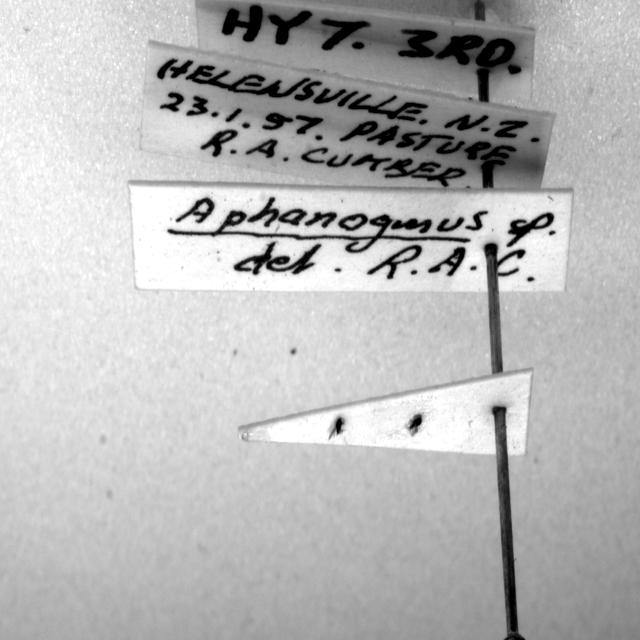 HY 7. 3RD.
HELENSVILLE. N.Z.
23.1.97. PASTURE
R.A. CUMBER
Aphanogmus sp.
det. R.A.C.